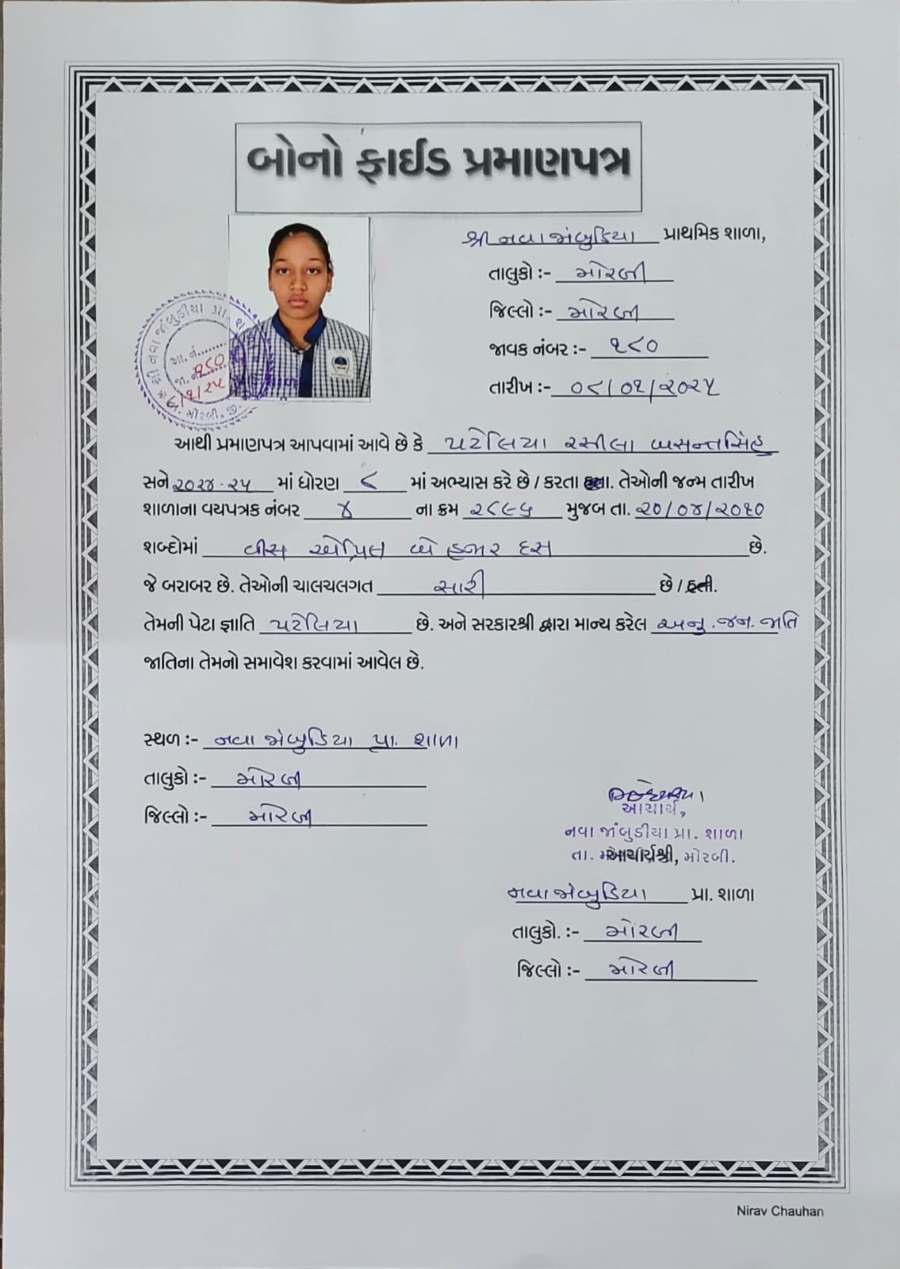 બોનો ફાઈડ પ્રમાણપત્ર
શ્રી નવા જાંબુડિયા પ્રાથમિક શાળા,
તાલુકો :- મોરબી
જિલ્લો :- મોરબી
જાવક નંબર :- ૧૮૦
તારીખ :- ૦૮/૦૧/૨૦૨૫
શ્રી નવા જાંબુડીયા પ્રા. શાળા
આ. નં.
જા. નં. ૧૮૦
૮/૧/૨૫
મોરબી.
આથી પ્રમાણપત્ર આપવામાં આવે છે કે પટેલિયા રસીલા બસન્તસિંહ
સને ૨૦૨૪-૨૫ માં ધોરણ ૮ માં અભ્યાસ કરે છે / કરતા હતા. તેઓની જન્મ તારીખ
શાળાના વયપત્રક નંબર ૪ ના ક્રમ ૨૮૯૫ મુજબ તા. ૨૦/૦૪/૨૦૧૦
શબ્દોમાં વીસ એપ્રિલ બે હજાર દસ છે.
જે બરાબર છે. તેઓની ચાલચલગત સારી છે / હતી.
તેમની પેટા જ્ઞાતિ પટેલિયા છે. અને સરકારશ્રી દ્વારા માન્ય કરેલ અનુ. જન. જાતિ
જાતિના તેમનો સમાવેશ કરવામાં આવેલ છે.
સ્થળ :- નવા જાંબુડિયા પ્રા. શાળા
તાલુકો :- મોરબી
જિલ્લો :- મોરબી
આચાર્ય,
નવા જાંબુડીયા પ્રા. શાળા
તા. આચાર્યશ્રી, મોરબી.
નવા જાંબુડિયા પ્રા. શાળા
તાલુકો. :- મોરબી
જિલ્લો :- મોરબી
Nirav Chauhan